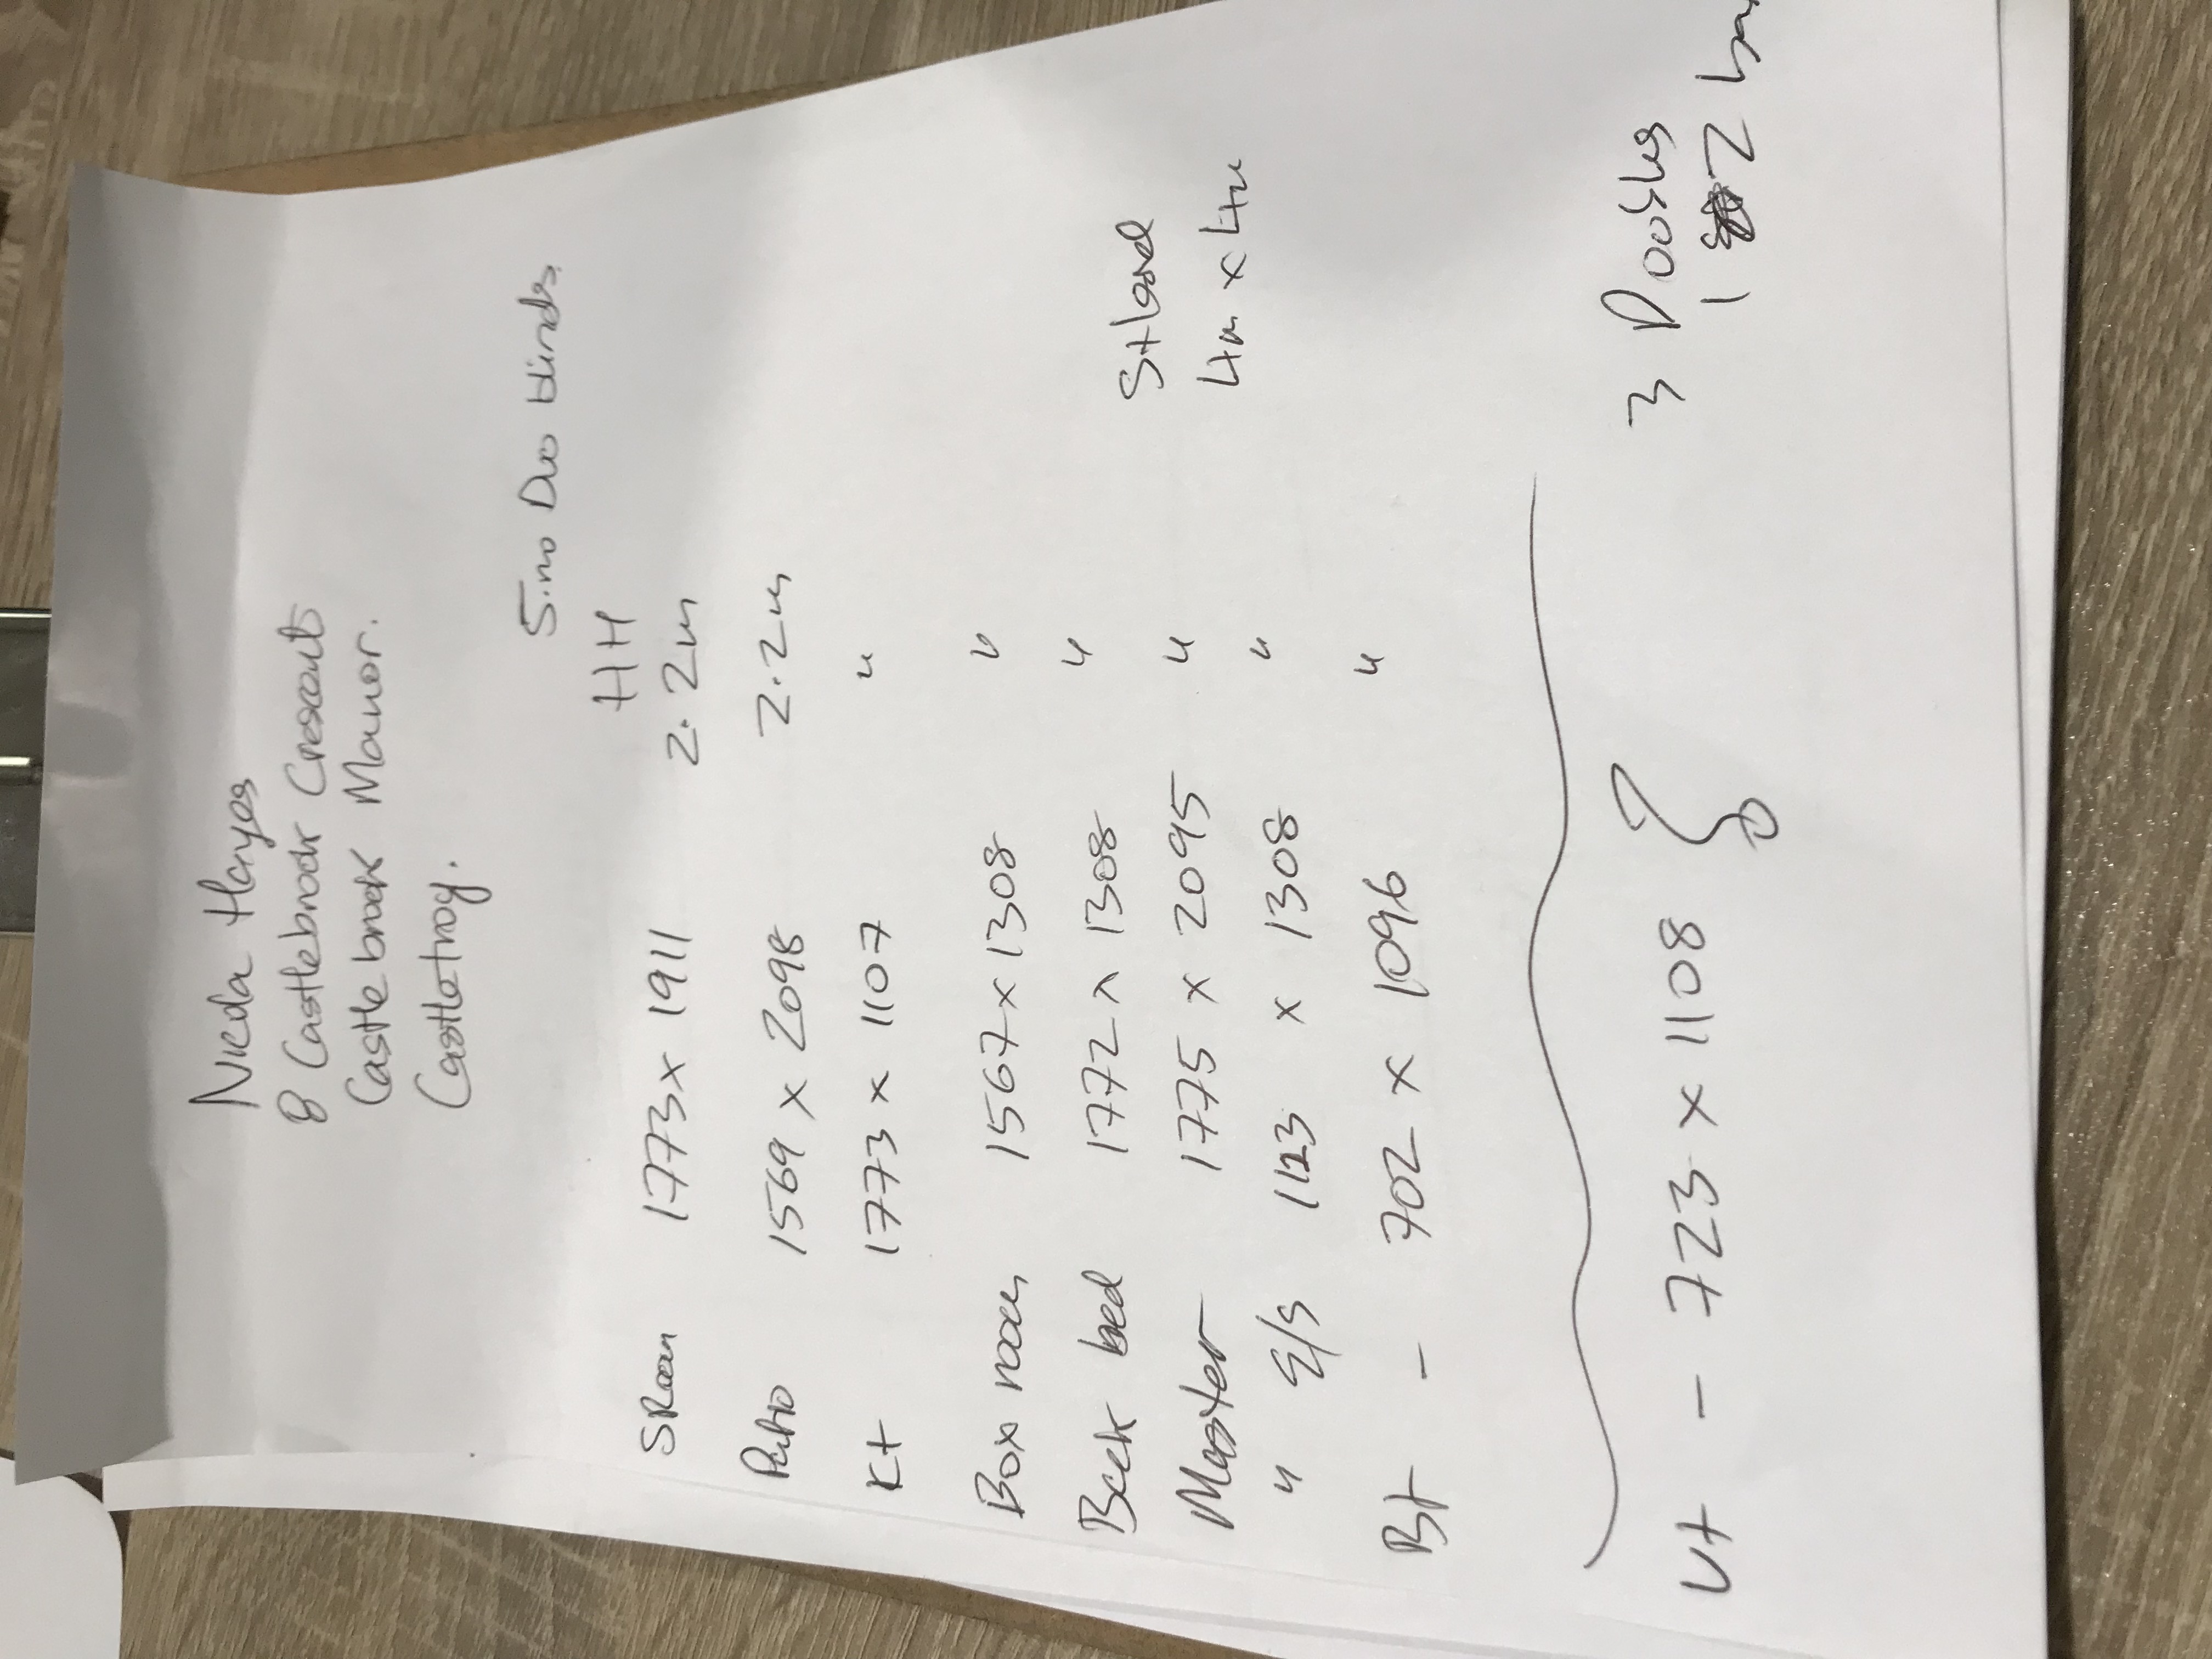 Nicola Hayes
8 Castlebrook Crescent
Castlebrook Manor.
Castletroy.
5.no Duo blinds.
HH
SRoom 1773 x 1911 2.2m
Patio 1569 x 2098 2.2m
Kt 1773 x 1107 "
Box room 1567 x 1308 "
Back bed 1772 x 1308 "
Master 1775 x 2095 "
" E/S 1123 x 1308 "
Bt - 702 x 1096 "
4m x 4m
Ut - 723 x 1108
3
1 2